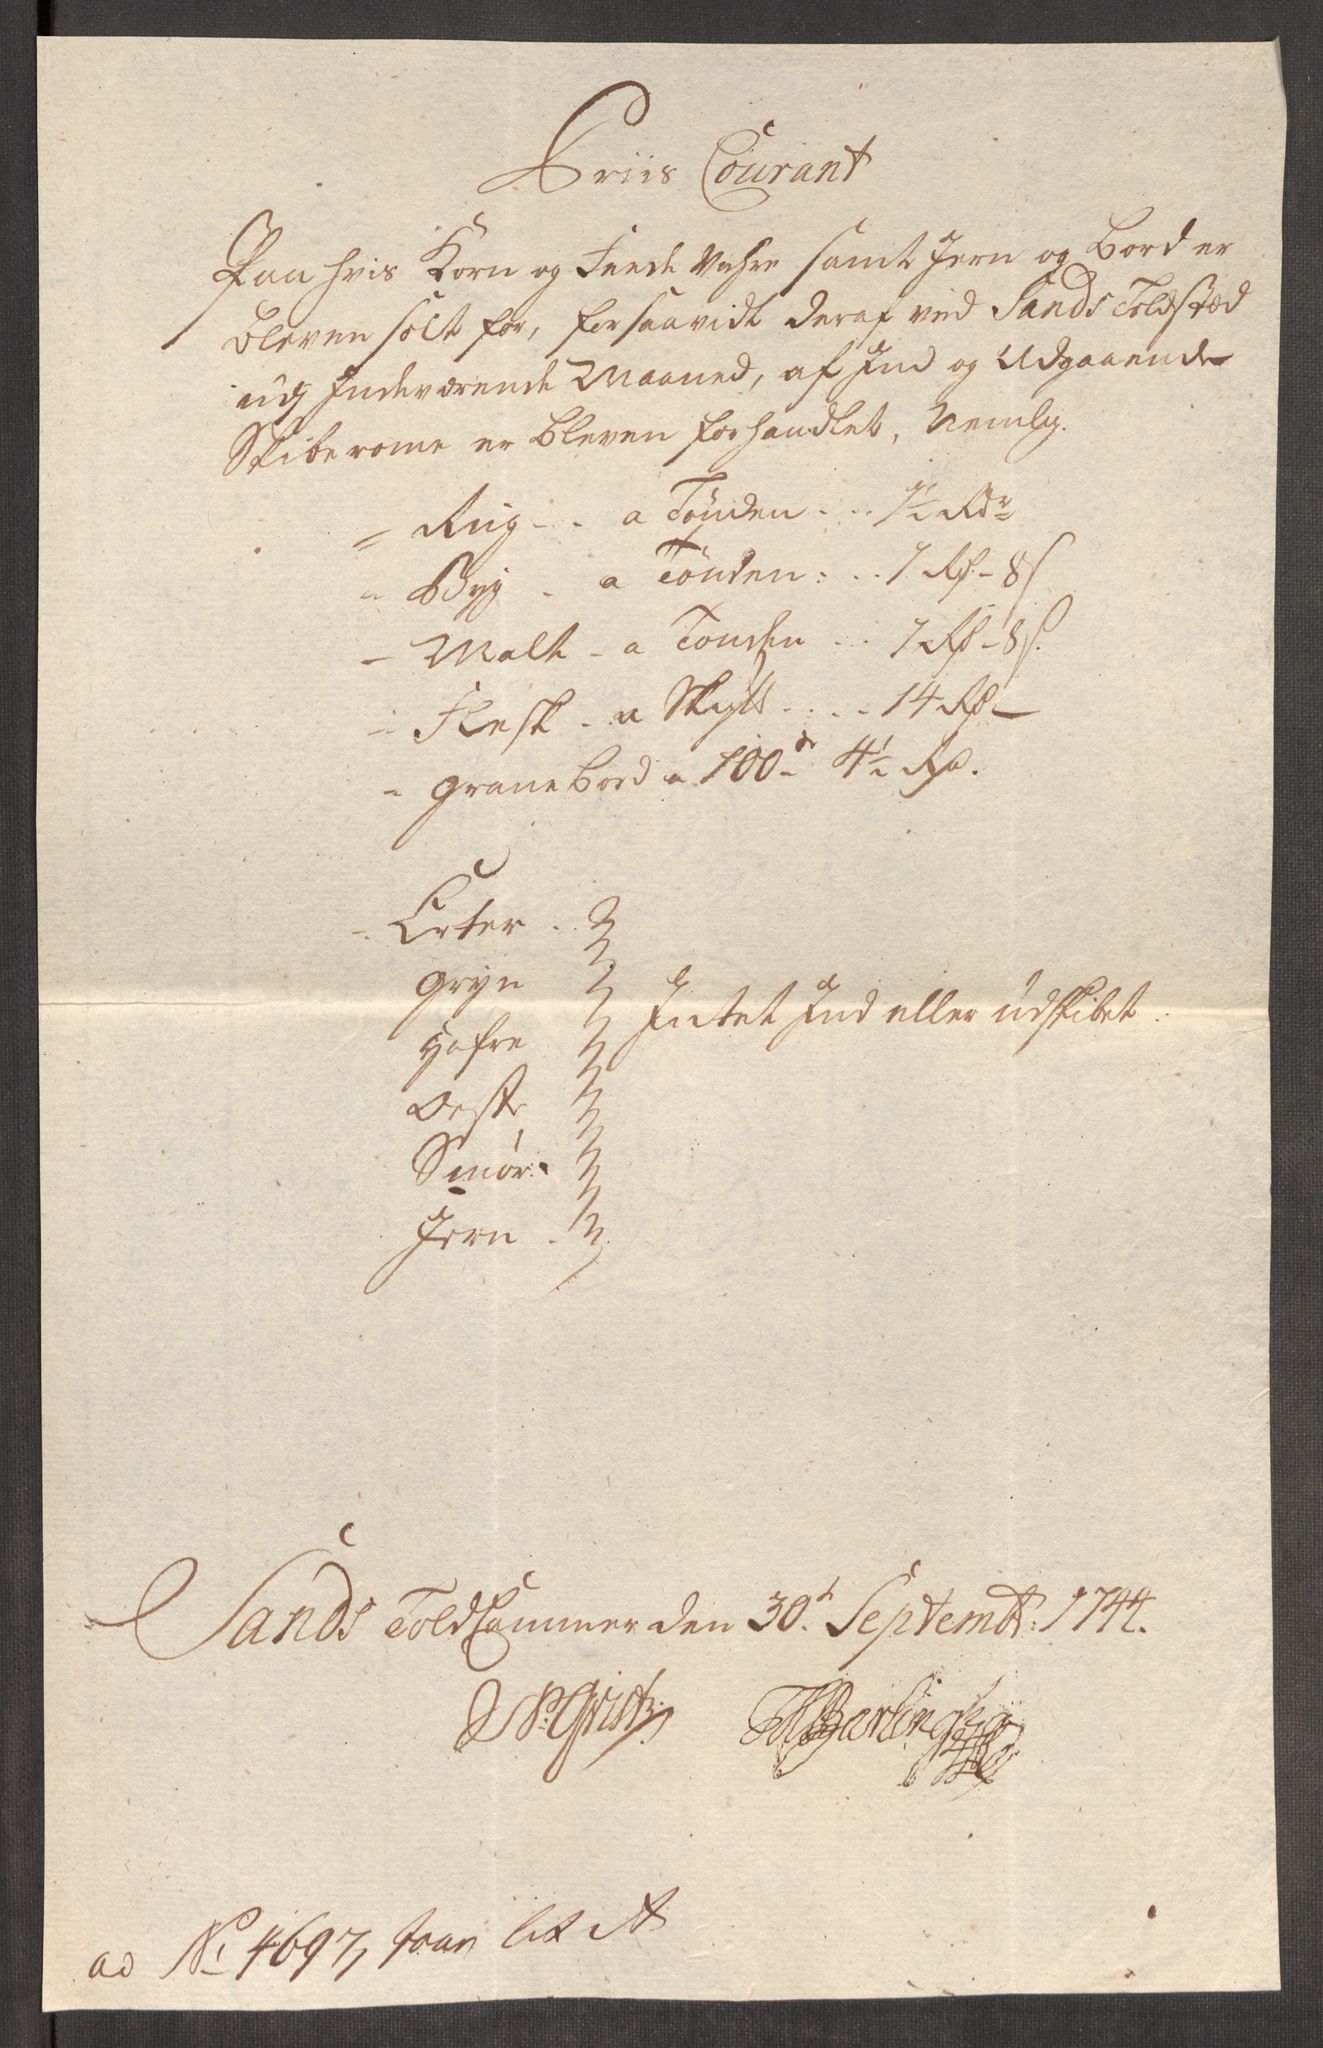 Priis Courant
Paa hvis Korn og Feede Vahre samt Jern og Bord er
bleven solt for, forsaavidt deraf ved Sands Toldsted
udj Indeværende Maaned, af Ind og Udgaaende
Skiberome er bleven forhandlet, Nemlig.
= Rug - . a Tønden . . . 1½ Rdr
= Byg . a Tønden . . . 1 Rd - 8 s
- Malt - a Tønden . . . 1 Rd - 8 s.
- Flesk . a . . . . 14 Rd -
= grane bord a 100de 4½ Rd.
- Erter .
gryn
hafre Intet Ind eller udskibet .
Oest
Smør .
Jern .
Sands Told Cammer den 30t. Septembr: 1744.
ad No 4697, lit A